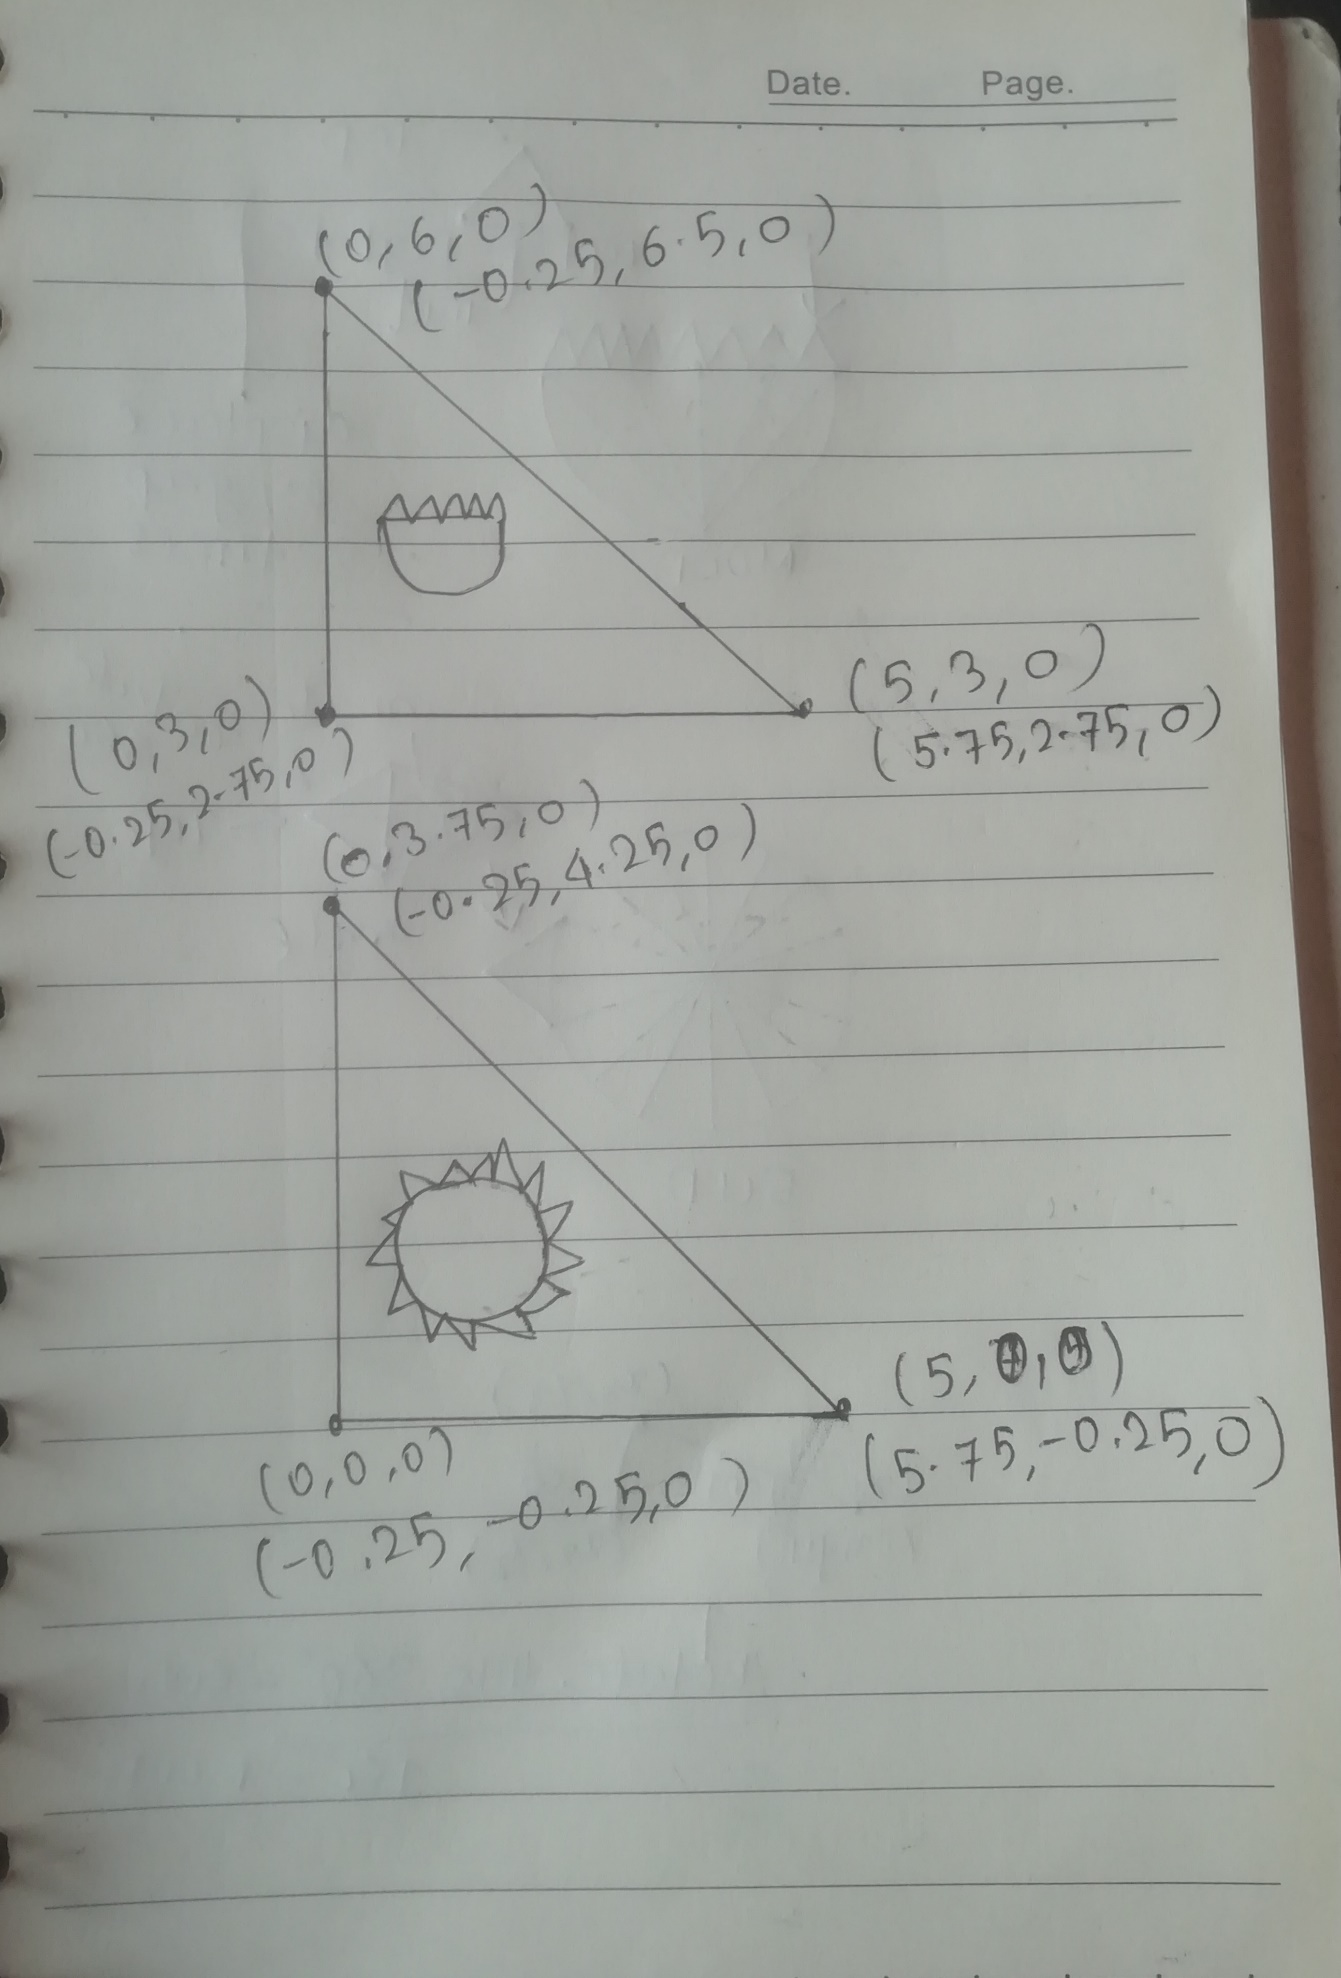 Date. Page.
(0,6,0)
(-0.25, 6.5,0)
(5,3,0)
(0,3,0)
(5.75,2.75,0)
(-0.25,2.75,0)
(0,3.75,0)
(-0.25,4.25,0)
(5,0,0)
(5.75,-0.25,0)
(0,0,0)
(-0.25,-0.25,0)